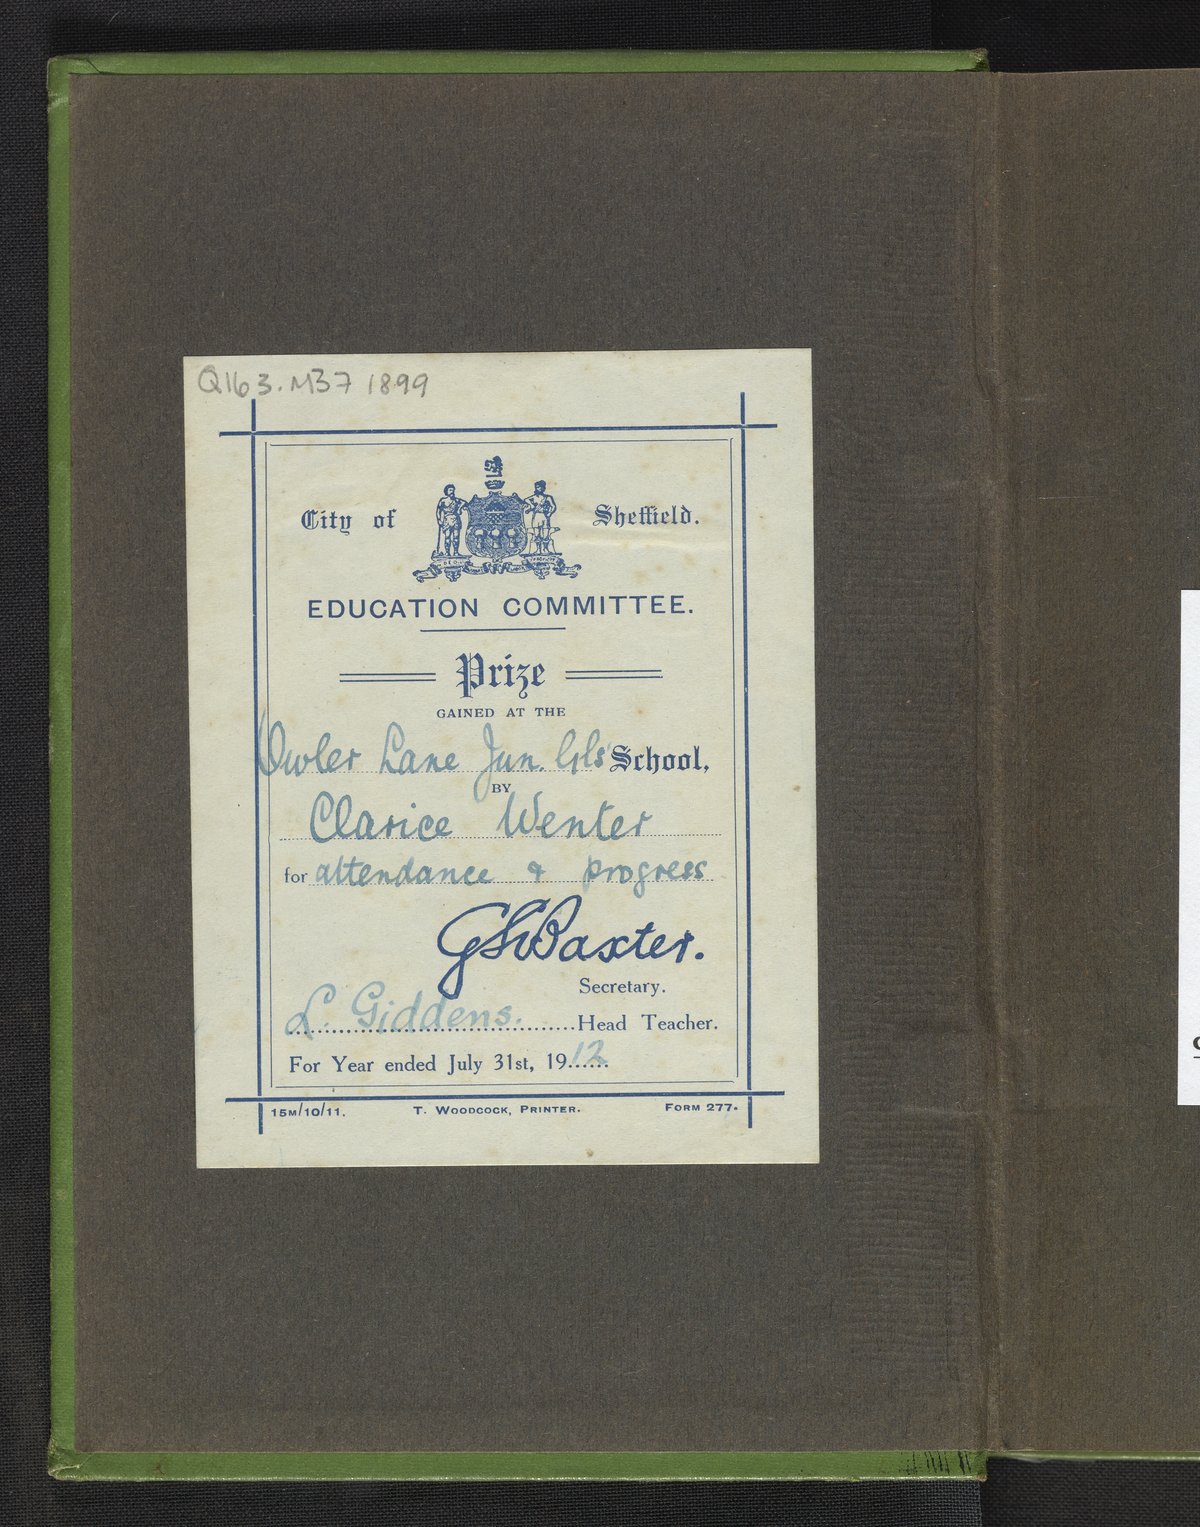 Q163.M37 1899
City of Sheffield.
EDUCATION COMMITTEE.
Prize
GAINED AT THE
Owler Lane Jun. Gls' School,
BY
Clarice Wenter
for attendance & progress
GS Baxter.
Secretary.
L. Giddens. Head Teacher.
For Year ended July 31st, 1912
15M/10/11. T. WOODCOCK, PRINTER. FORM 277.